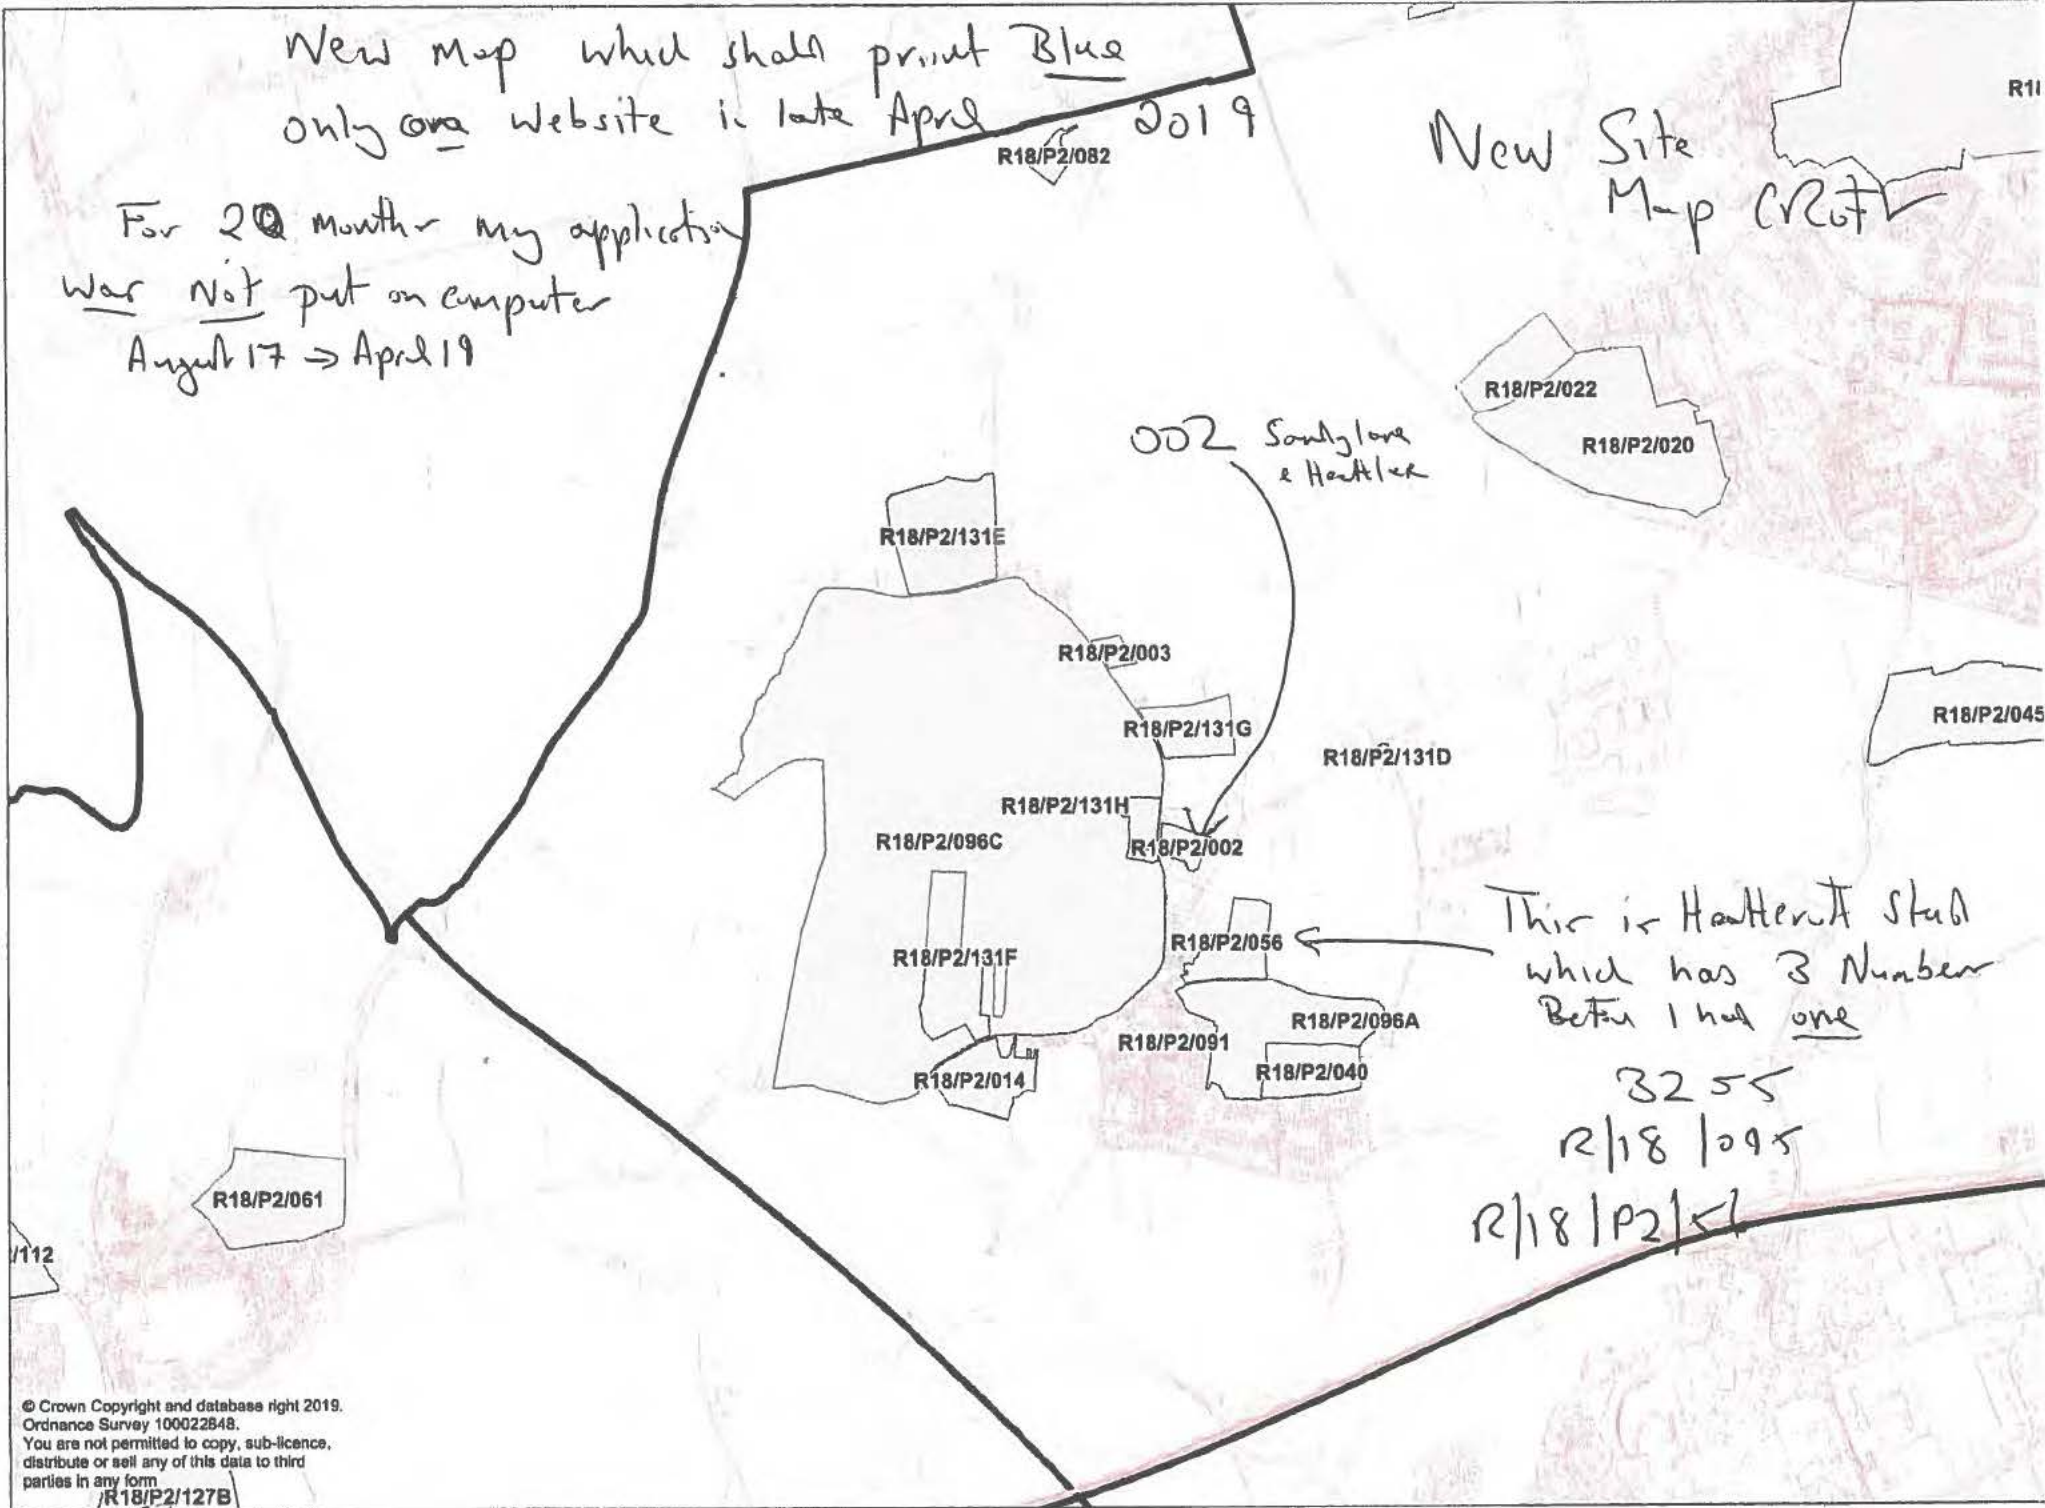 New Map which shall print Blue
only on a website in late April 2019
For 20 months my application
was Not put on computer
August 17 → April 19
New Site
Map
R18/P2/082
R18/P2/022
R18/P2/020
002
R18/P2/131E
R18/P2/003
R18/P2/131G
R18/P2/131D
R18/P2/045
R18/P2/131H
R18/P2/096C
R18/P2/002
R18/P2/131F
R18/P2/056
This is Heathcroft Stud
which has 3 Number
Before I had one
3255
R/18/095
R/18/P2/56
R18/P2/096A
R18/P2/091
R18/P2/040
R18/P2/014
R18/P2/061
/112
© Crown Copyright and database right 2019.
Ordnance Survey 100022848.
You are not permitted to copy, sub-licence,
distribute or sell any of this data to third
parties in any form
R18/P2/127B